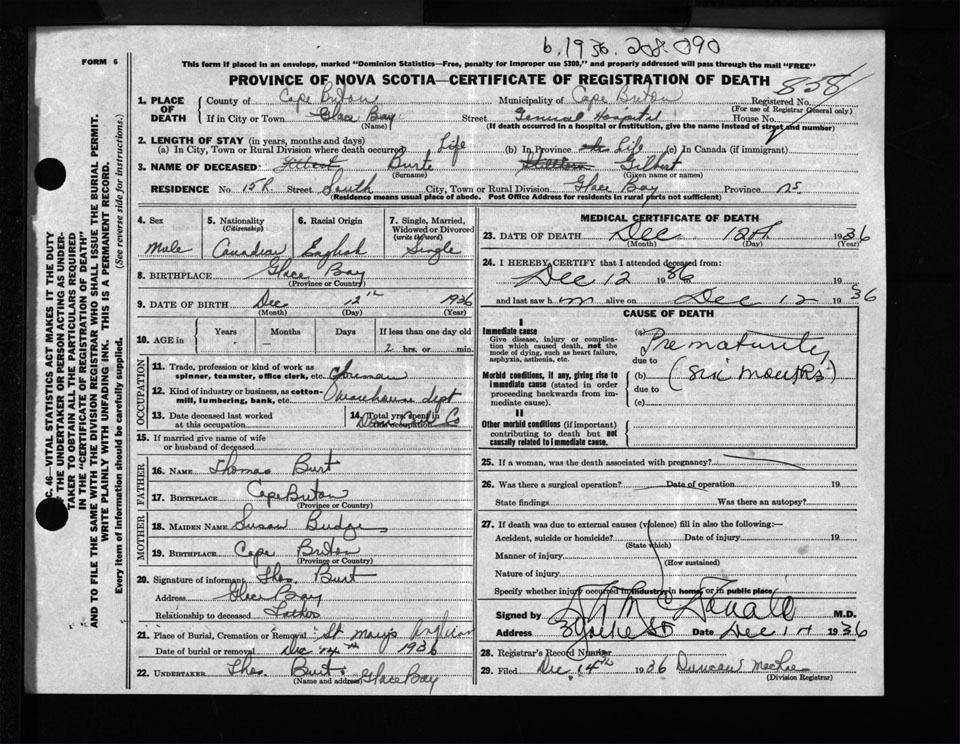 b. 1936. 208.090
FORM 6
This form if placed in an envelope, marked "Dominion Statistics—Free, penalty for improper use $300," and properly addressed will pass through the mail "FREE"
PROVINCE OF NOVA SCOTIA—CERTIFICATE OF REGISTRATION OF DEATH
858
1. PLACE OF DEATH County of Cape Breton Municipality of Cape Breton Registered No. (For use of Registrar General only)
If in City or Town Glace Bay (Name) Street General Hospital House No.
(If death occurred in a hospital or institution, give the name instead of street and number)
2. LENGTH OF STAY (in years, months and days)
(a) In City, Town or Rural Division where death occurred Life (b) In Province Life (c) In Canada (if immigrant)
3. NAME OF DECEASED Burt (Surname) William Gilbert (Given name or names)
RESIDENCE No. Street South City, Town or Rural Division Glace Bay Province NS
(Residence means usual place of abode. Post Office Address for residents in rural parts not sufficient)
4. Sex Male
5. Nationality (Citizenship) Canadian
6. Racial Origin English
7. Single, Married, Widowed or Divorced (write the word) Single
8. BIRTHPLACE Glace Bay (Province or Country)
9. DATE OF BIRTH Dec (Month) 12th (Day) 1936 (Year)
10. AGE in Years Months Days If less than one day old
2 hrs. or min.
OCCUPATION
11. Trade, profession or kind of work as spinner, teamster, office clerk, etc.
12. Kind of industry or business, as cotton-mill, lumbering, bank, etc. warehouse dept
13. Date deceased last worked at this occupation
14. Total yrs. spent in this occupation Co
15. If married give name of wife or husband of deceased
FATHER
16. NAME Thomas Burt
17. BIRTHPLACE Cape Breton (Province or Country)
MOTHER
18. MAIDEN NAME Susan Budge
19. BIRTHPLACE Cape Breton (Province or Country)
20. Signature of informant Thos. Burt
Address Glace Bay
Relationship to deceased Father
21. Place of Burial, Cremation or Removal St Mary's Anglican
Date of burial or removal Dec 14th 1936
22. UNDERTAKER Thos. Burt Glace Bay
(Name and address)
MEDICAL CERTIFICATE OF DEATH
23. DATE OF DEATH Dec (Month) 12th (Day) 1936 (Year)
24. I HEREBY CERTIFY that I attended deceased from:
Dec 12 1936 19
and last saw h m alive on Dec 12 1936
CAUSE OF DEATH
I
Immediate cause
Give disease, injury or complication which caused death, not the mode of dying, such as heart failure, asphyxia, asthenia, etc.
(a) Prematurity
due to
Morbid conditions, if any, giving rise to immediate cause (stated in order proceeding backwards from immediate cause).
(b) (six months)
due to
(c)
II
Other morbid conditions (if important) contributing to death but not causally related to immediate cause.
25. If a woman, was the death associated with pregnancy?
26. Was there a surgical operation? Date of operation 19
State findings Was there an autopsy?
27. If death was due to external causes (violence) fill in also the following:—
Accident, suicide or homicide? (State which) Date of injury 19
Manner of injury (How sustained)
Nature of injury
Specify whether injury occurred in industry, in home, or in public place
Signed by McDonald M.D.
Address Date Dec 14 1936
28. Registrar's Record Number
29. Filed Dec 14th 1936 Duncan MacRae
(Division Registrar)
C. 46—VITAL STATISTICS ACT MAKES IT THE DUTY
OF THE UNDERTAKER OR PERSON ACTING AS UNDER-
TAKER TO OBTAIN ALL THE PARTICULARS REQUIRED
IN THE "CERTIFICATE OF REGISTRATION OF DEATH"
AND TO FILE THE SAME WITH THE DIVISION REGISTRAR WHO SHALL ISSUE THE BURIAL PERMIT.
WRITE PLAINLY WITH UNFADING INK. THIS IS A PERMANENT RECORD.
Every item of information should be carefully supplied. (See reverse side for instructions.)